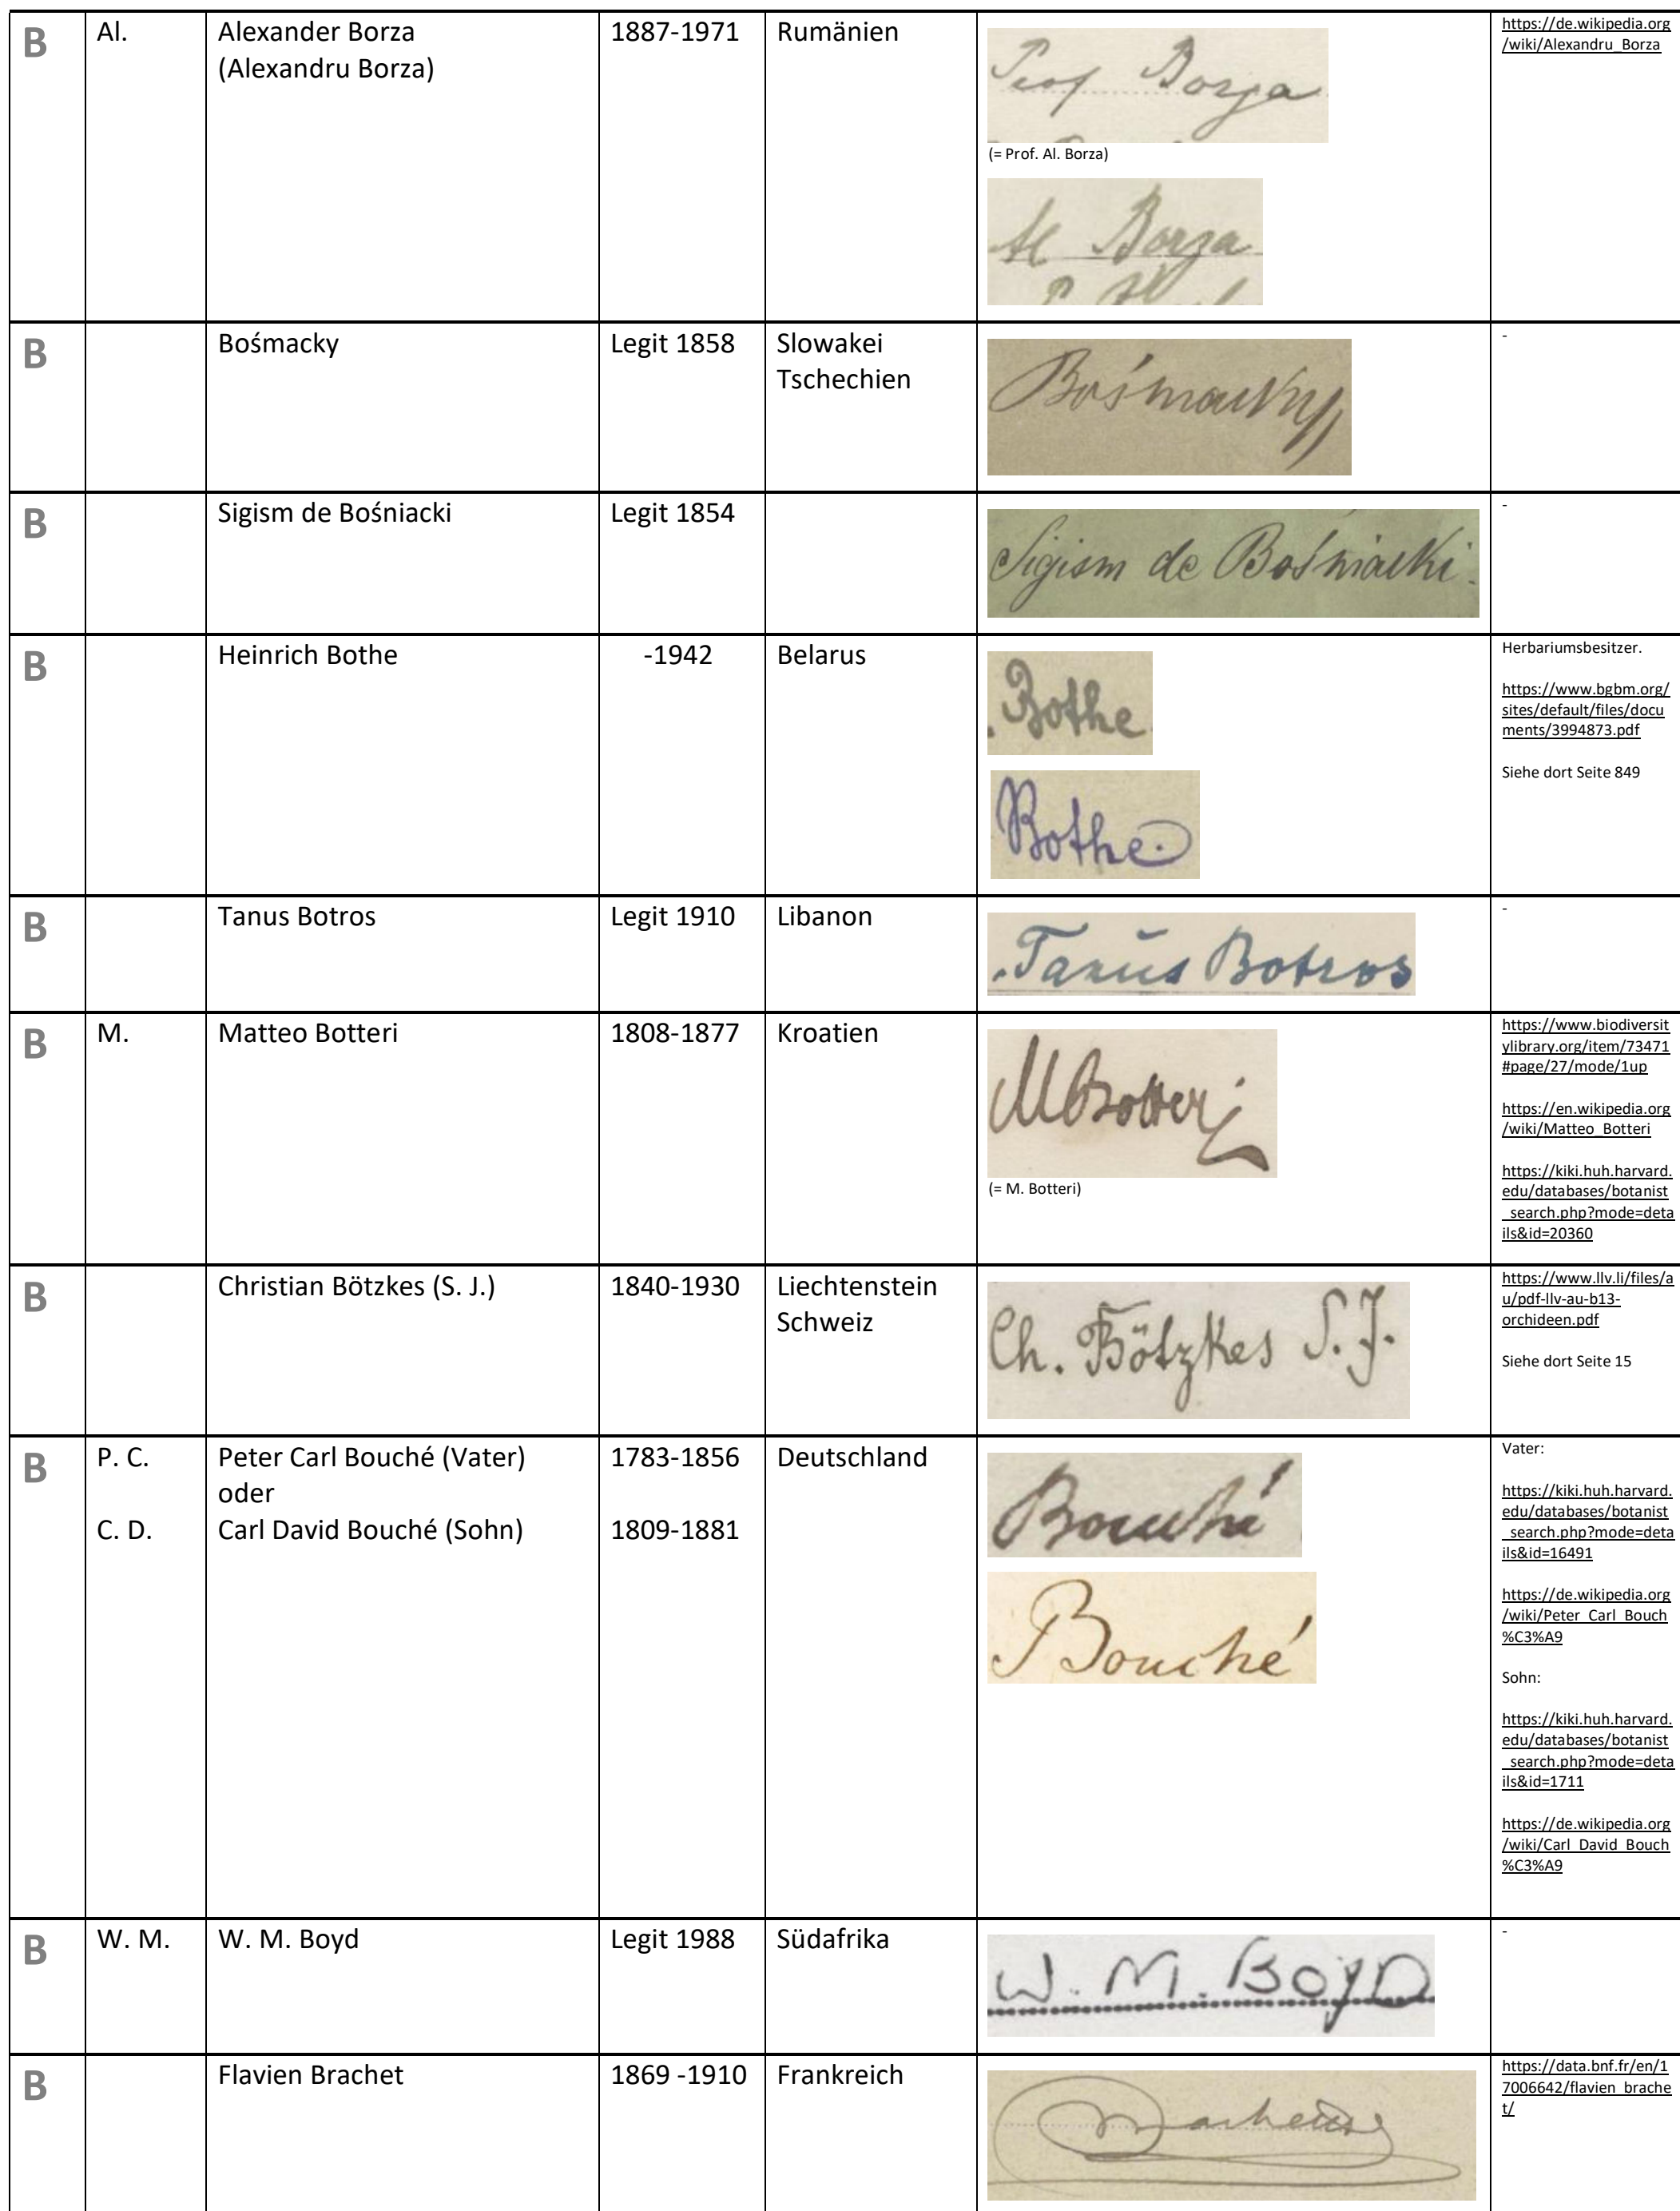 B Al. Alexander Borza 1887-1971 Rumänien
(Alexandru Borza)
Prof Borza
(= Prof. Al. Borza)
Al Borza
https://de.wikipedia.org
/wiki/Alexandru_Borza
B Bośmacky Legit 1858 Slowakei
Tschechien
Bośmacky
-
B Sigism de Bośniacki Legit 1854
Sigism de Bośniacki.
-
B Heinrich Bothe -1942 Belarus
Bothe
Bothe.
Herbariumsbesitzer.
https://www.bgbm.org/
sites/default/files/docu
ments/3994873.pdf
Siehe dort Seite 849
B Tanus Botros Legit 1910 Libanon
Tanus Botros
-
B M. Matteo Botteri 1808-1877 Kroatien
MBotteri
(= M. Botteri)
https://www.biodiversit
ylibrary.org/item/73471
#page/27/mode/1up
https://en.wikipedia.org
/wiki/Matteo_Botteri
https://kiki.huh.harvard.
edu/databases/botanist
_search.php?mode=deta
ils&id=20360
B Christian Bötzkes (S. J.) 1840-1930 Liechtenstein
Schweiz
Ch. Bötzkes S. J.
https://www.llv.li/files/a
u/pdf-llv-au-b13-
orchideen.pdf
Siehe dort Seite 15
B P. C. Peter Carl Bouché (Vater) 1783-1856 Deutschland
oder
C. D. Carl David Bouché (Sohn) 1809-1881
Bouché
Bouché
Vater:
https://kiki.huh.harvard.
edu/databases/botanist
_search.php?mode=deta
ils&id=16491
https://de.wikipedia.org
/wiki/Peter_Carl_Bouch
%C3%A9
Sohn:
https://kiki.huh.harvard.
edu/databases/botanist
_search.php?mode=deta
ils&id=1711
https://de.wikipedia.org
/wiki/Carl_David_Bouch
%C3%A9
B W. M. W. M. Boyd Legit 1988 Südafrika
W. M. BOYD
-
B Flavien Brachet 1869 -1910 Frankreich
https://data.bnf.fr/en/1
7006642/flavien_brache
t/